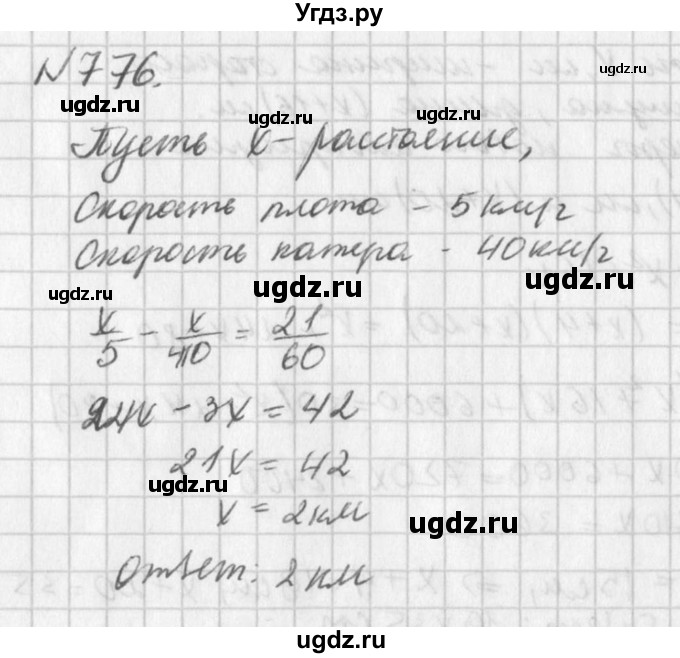 Угдз.ру
№776.
ugdz.ru
ugdz.ru
Пусть x - расстояние,
ugdz.ru
ugdz.ru
Скорость плота - 5 км/ч
Скорость катера - 40 км/ч
ugdz.ru
ugdz.ru
ugdz.ru
x/5 - x/40 = 21/60
24x - 3x = 42
21x = 42
ugdz.ru
x = 2 км
ugdz.ru
Ответ: 2 км
ugdz.ru